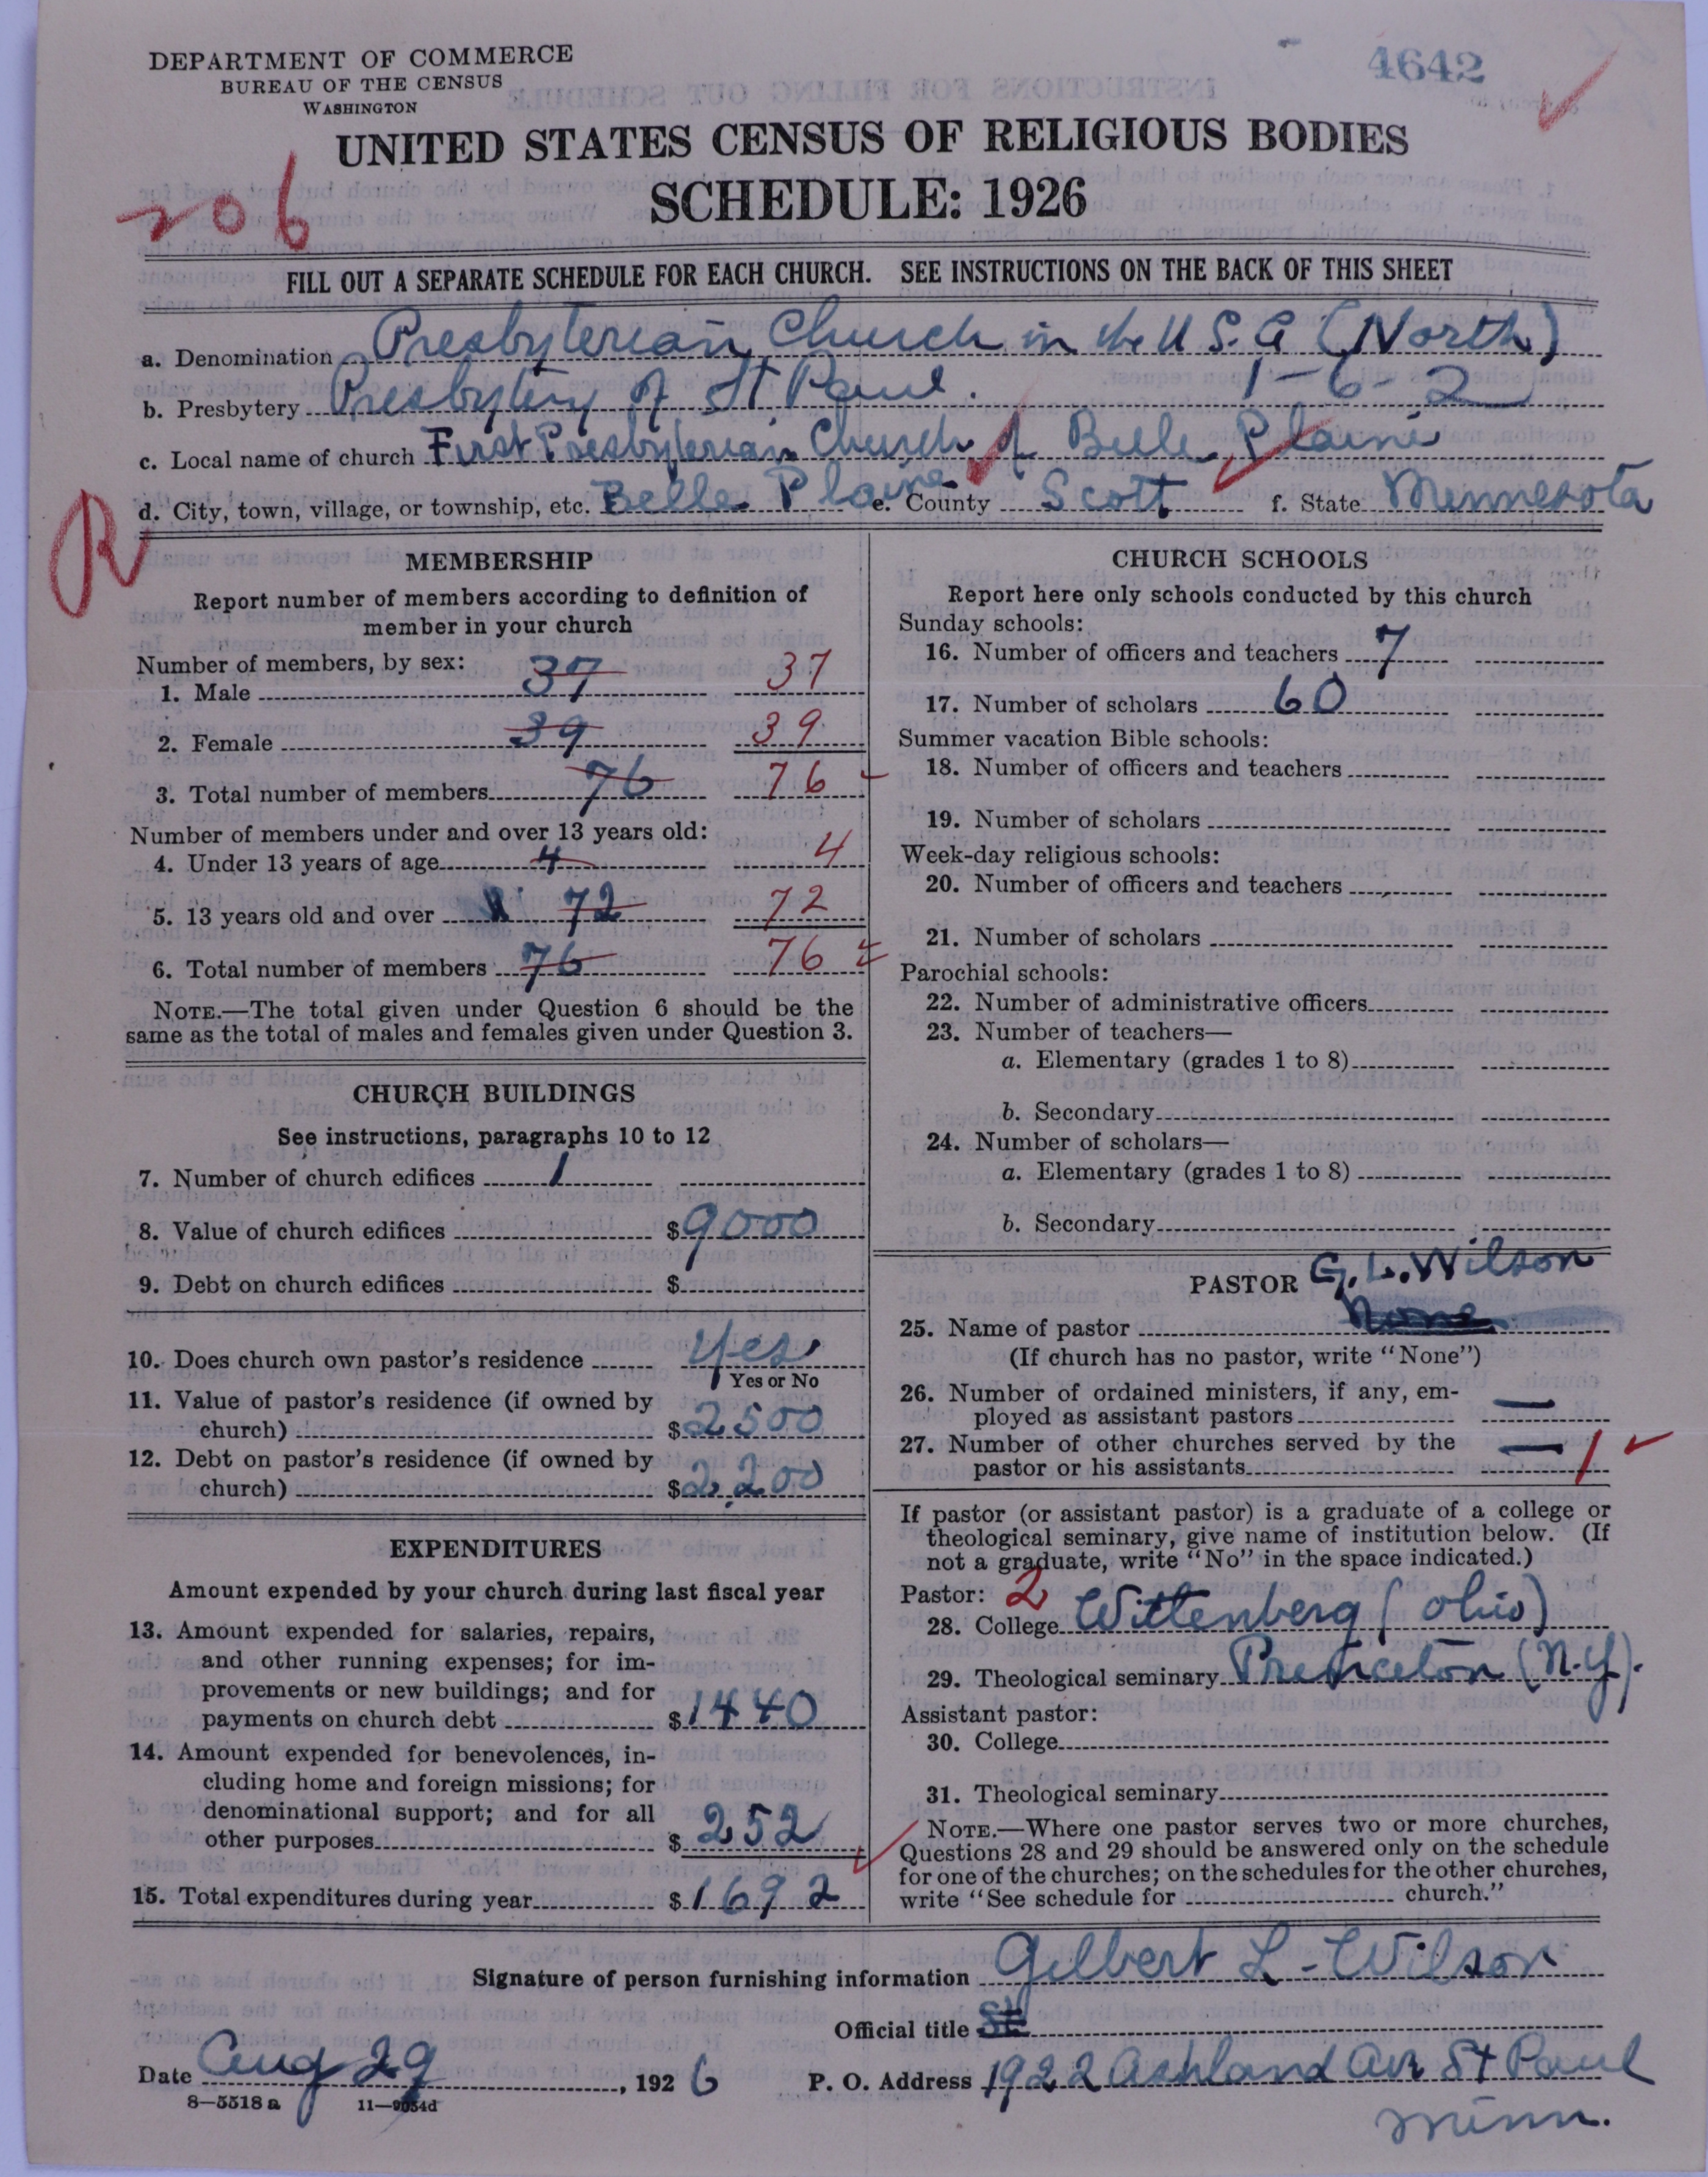 DEPARTMENT OF COMMERCE
BUREAU OF THE CENSUS
WASHINGTON
4642
UNITED STATES CENSUS OF RELIGIOUS BODIES
SCHEDULE: 1926
206
FILL OUT A SEPARATE SCHEDULE FOR EACH CHURCH. SEE INSTRUCTIONS ON THE BACK OF THIS SHEET
a. Denomination Presbyterian Church in the U.S.A (North)
b. Presbytery Presbytery of St Paul. 1-6-2
c. Local name of church First Presbyterian Church of Belle Plaine
d. City, town, village, or township, etc. Belle Plaine e. County Scott f. State Minnesota
R
MEMBERSHIP
Report number of members according to definition of
member in your church
Number of members, by sex:
1. Male 37 37
2. Female 39 39
3. Total number of members 76 76
Number of members under and over 13 years old:
4. Under 13 years of age 4 4
5. 13 years old and over 72 72
6. Total number of members 76 76
NOTE.—The total given under Question 6 should be the
same as the total of males and females given under Question 3.
CHURCH BUILDINGS
See instructions, paragraphs 10 to 12
7. Number of church edifices 1
8. Value of church edifices $9000
9. Debt on church edifices $
10. Does church own pastor's residence Yes
Yes or No
11. Value of pastor's residence (if owned by
church) $2500
12. Debt on pastor's residence (if owned by
church) $2,200
EXPENDITURES
Amount expended by your church during last fiscal year
13. Amount expended for salaries, repairs,
and other running expenses; for im-
provements or new buildings; and for
payments on church debt $1440
14. Amount expended for benevolences, in-
cluding home and foreign missions; for
denominational support; and for all
other purposes $252
15. Total expenditures during year $1692
CHURCH SCHOOLS
Report here only schools conducted by this church
Sunday schools:
16. Number of officers and teachers 7
17. Number of scholars 60
Summer vacation Bible schools:
18. Number of officers and teachers
19. Number of scholars
Week-day religious schools:
20. Number of officers and teachers
21. Number of scholars
Parochial schools:
22. Number of administrative officers
23. Number of teachers—
a. Elementary (grades 1 to 8)
b. Secondary
24. Number of scholars—
a. Elementary (grades 1 to 8)
b. Secondary
PASTOR G. L. Wilson
25. Name of pastor None
(If church has no pastor, write "None")
26. Number of ordained ministers, if any, em-
ployed as assistant pastors —
27. Number of other churches served by the
pastor or his assistants — 1
If pastor (or assistant pastor) is a graduate of a college or
theological seminary, give name of institution below. (If
not a graduate, write "No" in the space indicated.)
Pastor: 2
28. College Wittenberg (Ohio)
29. Theological seminary Princeton (N.Y).
Assistant pastor:
30. College
31. Theological seminary
NOTE.—Where one pastor serves two or more churches,
Questions 28 and 29 should be answered only on the schedule
for one of the churches; on the schedules for the other churches,
write "See schedule for church."
Signature of person furnishing information Gilbert L. Wilson
Official title St
Date Aug 29, 1926 P. O. Address 1922 Ashland Av St Paul
Minn.
8—5518 a 11—9054d